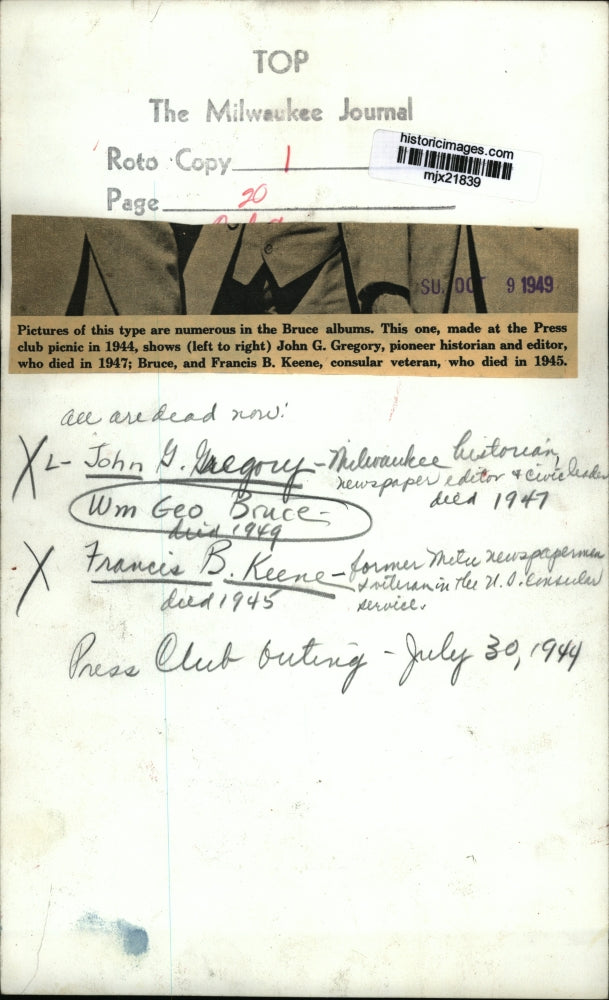 TOP
The Milwaukee Journal
Roto Copy 1
Page 20
historicimages.com
mjx21839
SU. OCT 9 1949
Pictures of this type are numerous in the Bruce albums. This one, made at the Press
club picnic in 1944, shows (left to right) John G. Gregory, pioneer historian and editor,
who died in 1947; Bruce, and Francis B. Keene, consular veteran, who died in 1945.
all are dead now!
X L- John G. Gregory - Milwaukee historian,
newspaper editor + civic leader
died 1947
Wm Geo Bruce -
died 1949
X Francis B. Keene - former Milw newspaperman
& veteran in the U.S. Consular
service.
died 1945
Press Club Outing - July 30, 1944